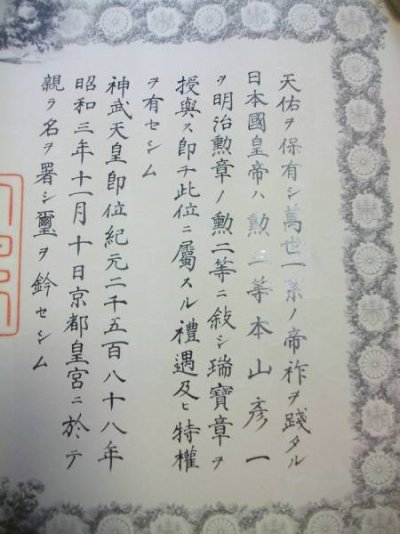 天佑ヲ保有シ萬世一系ノ帝祚ヲ踐タル
日本國皇帝ハ勲三等本山彦一
ヲ明治勲章ノ勲二等ニ敍シ瑞寶章ヲ
授與ス即チ此位ニ屬スル禮遇及ヒ特權
ヲ有セシム
神武天皇即位紀元二千五百八十八年
昭和三年十一月十日京都皇宮ニ於テ
親ラ名ヲ署シ璽ヲ鈐セシム